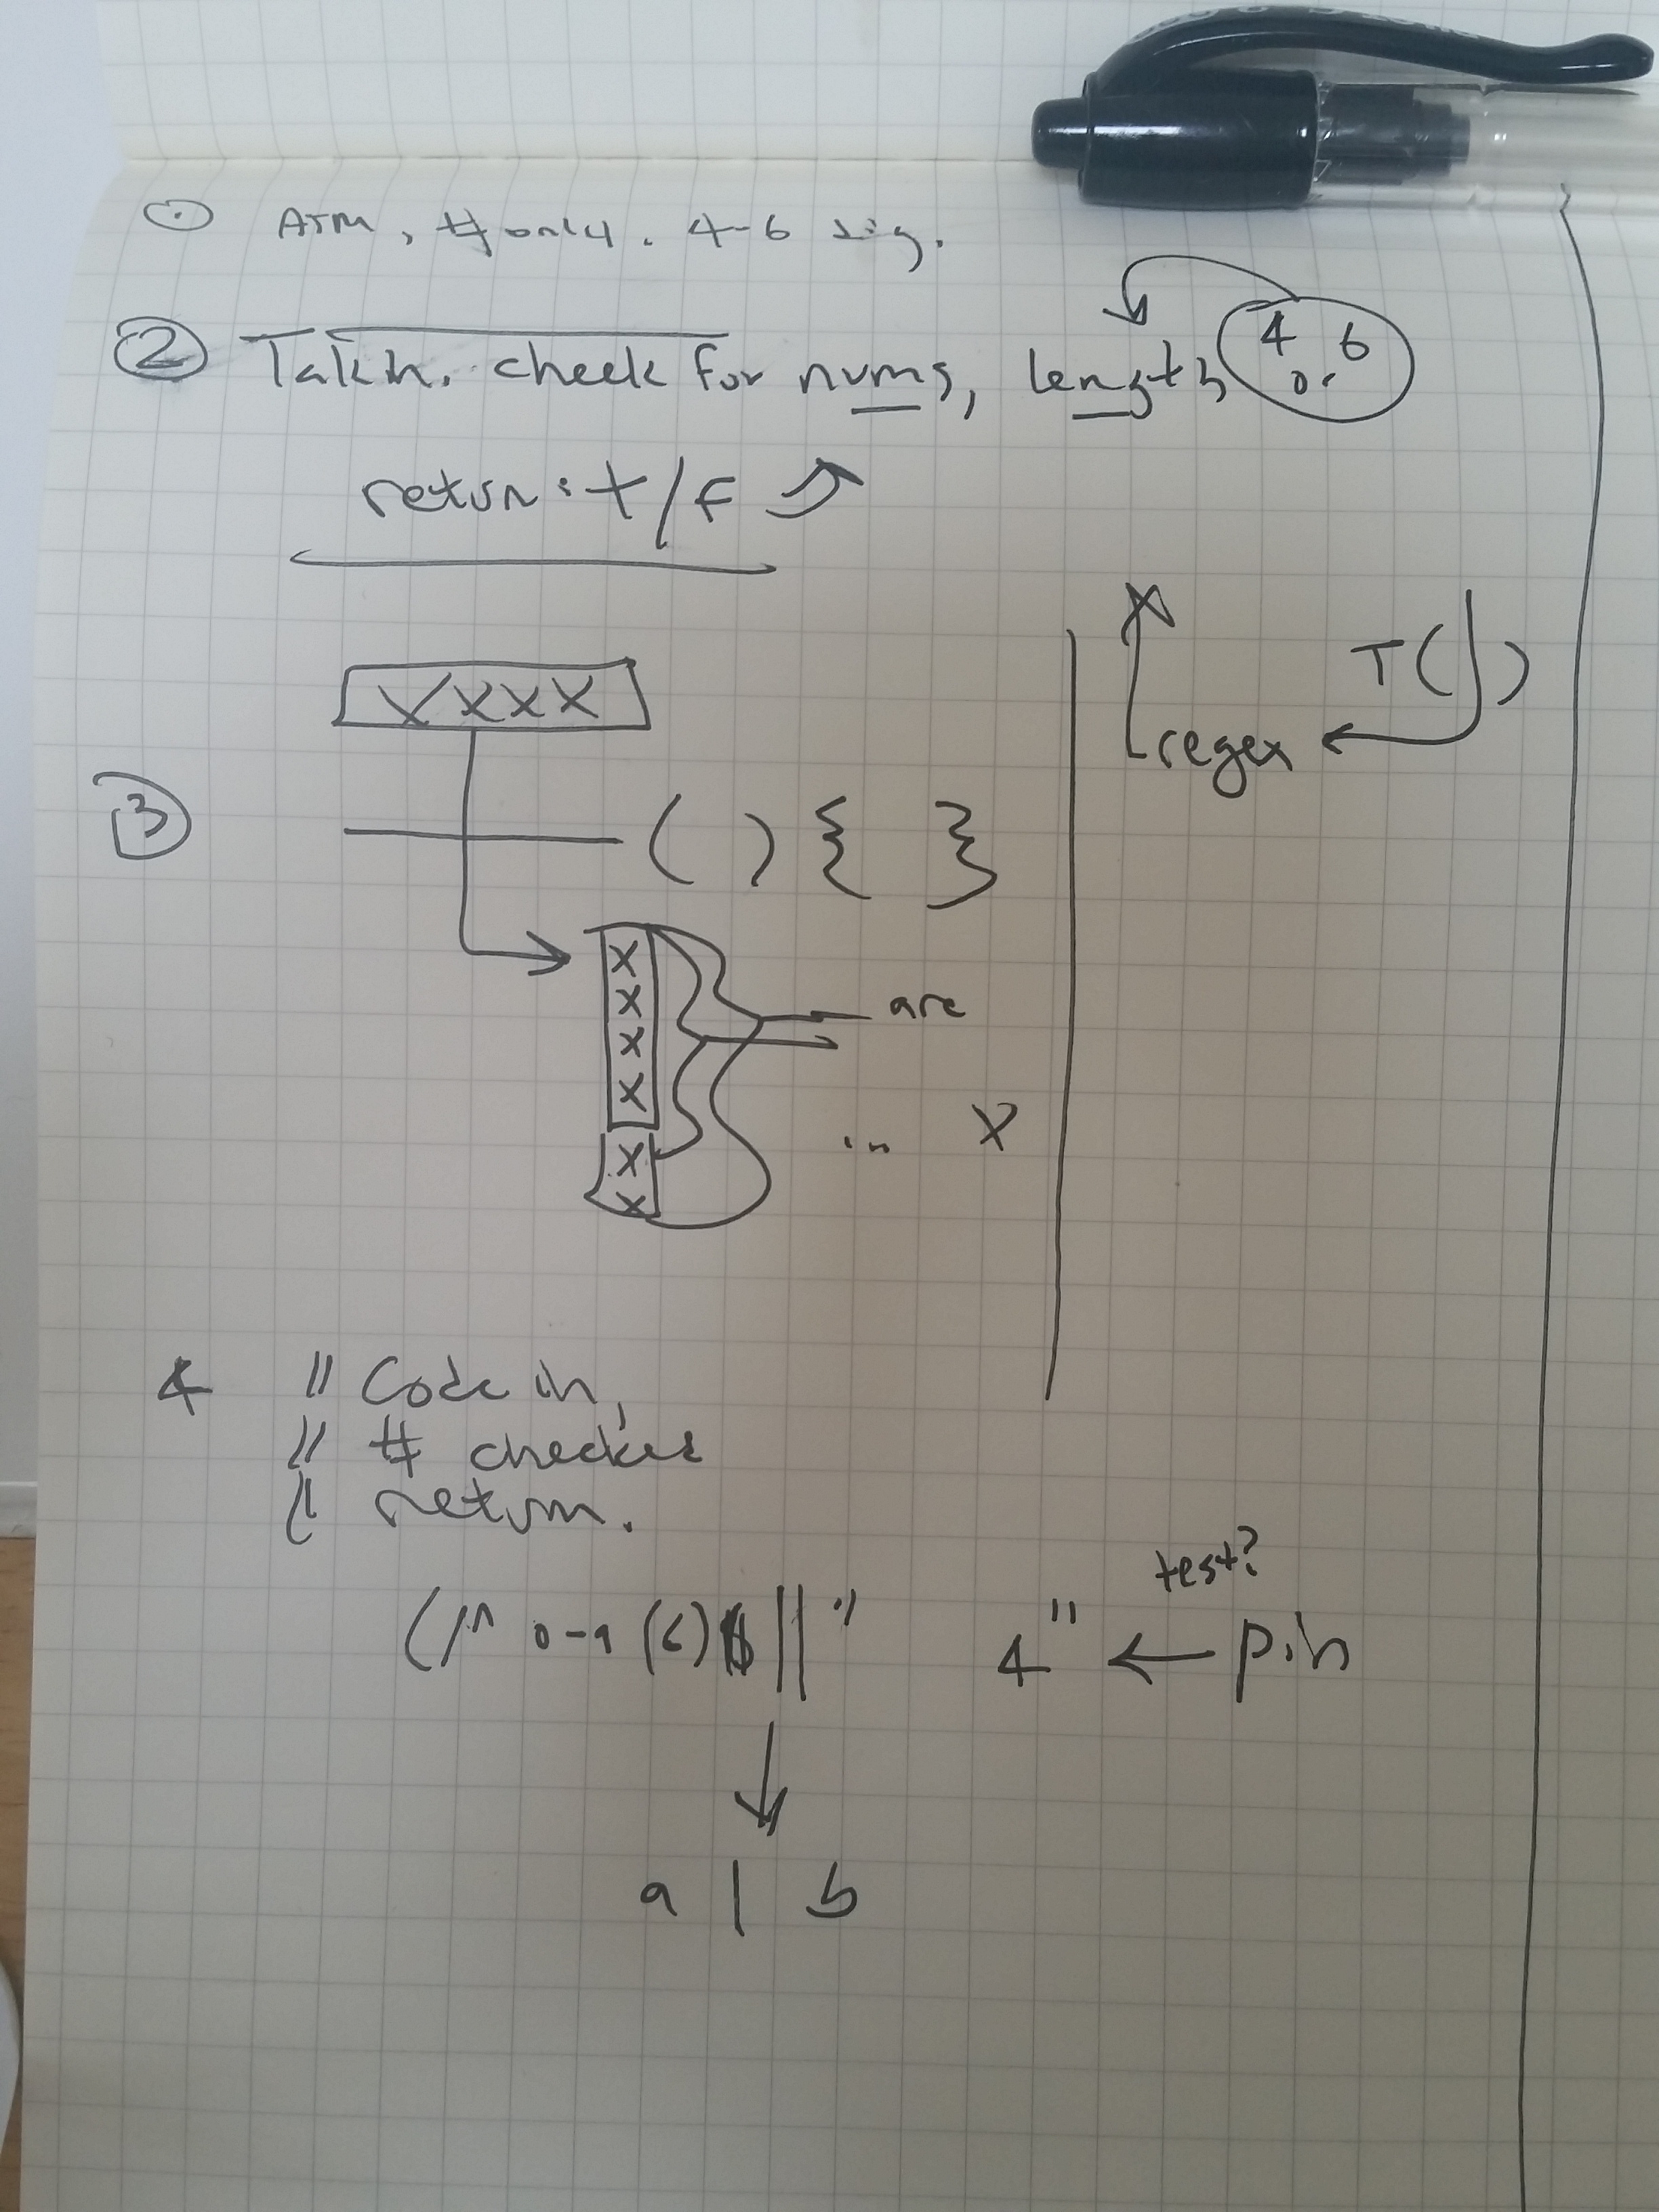 ① ATM, # only. 4-6 dig.
② Tak in. check for nums, length 4 or 6
return: t/f
XXXX
T( )
regex
③ ( ) { }
X
X
X
X
X
X
are
... X
4 // Code in,
// # checker
// return.
test?
(/^ 0-9 (6)$ || " 4" ← pin
a | b